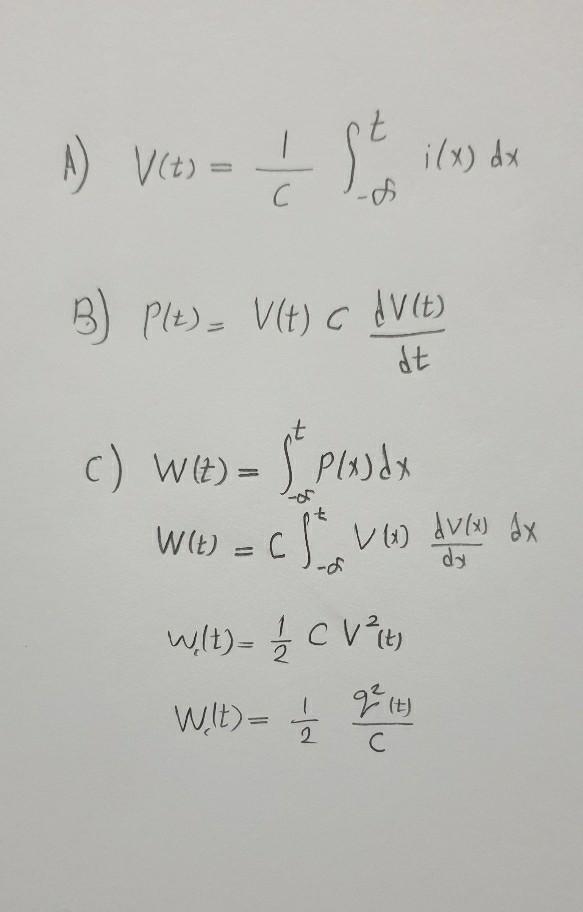 A) V(t) = 1/C ∫_{-∞}^{t} i(x) dx
B) P(t) = V(t) C dV(t)/dt
C) W(t) = ∫_{-∞}^{t} P(x) dx
W(t) = C ∫_{-∞}^{t} V(x) dV(x)/dx dx
W_c(t) = 1/2 C V²(t)
W_c(t) = 1/2 q²(t)/C